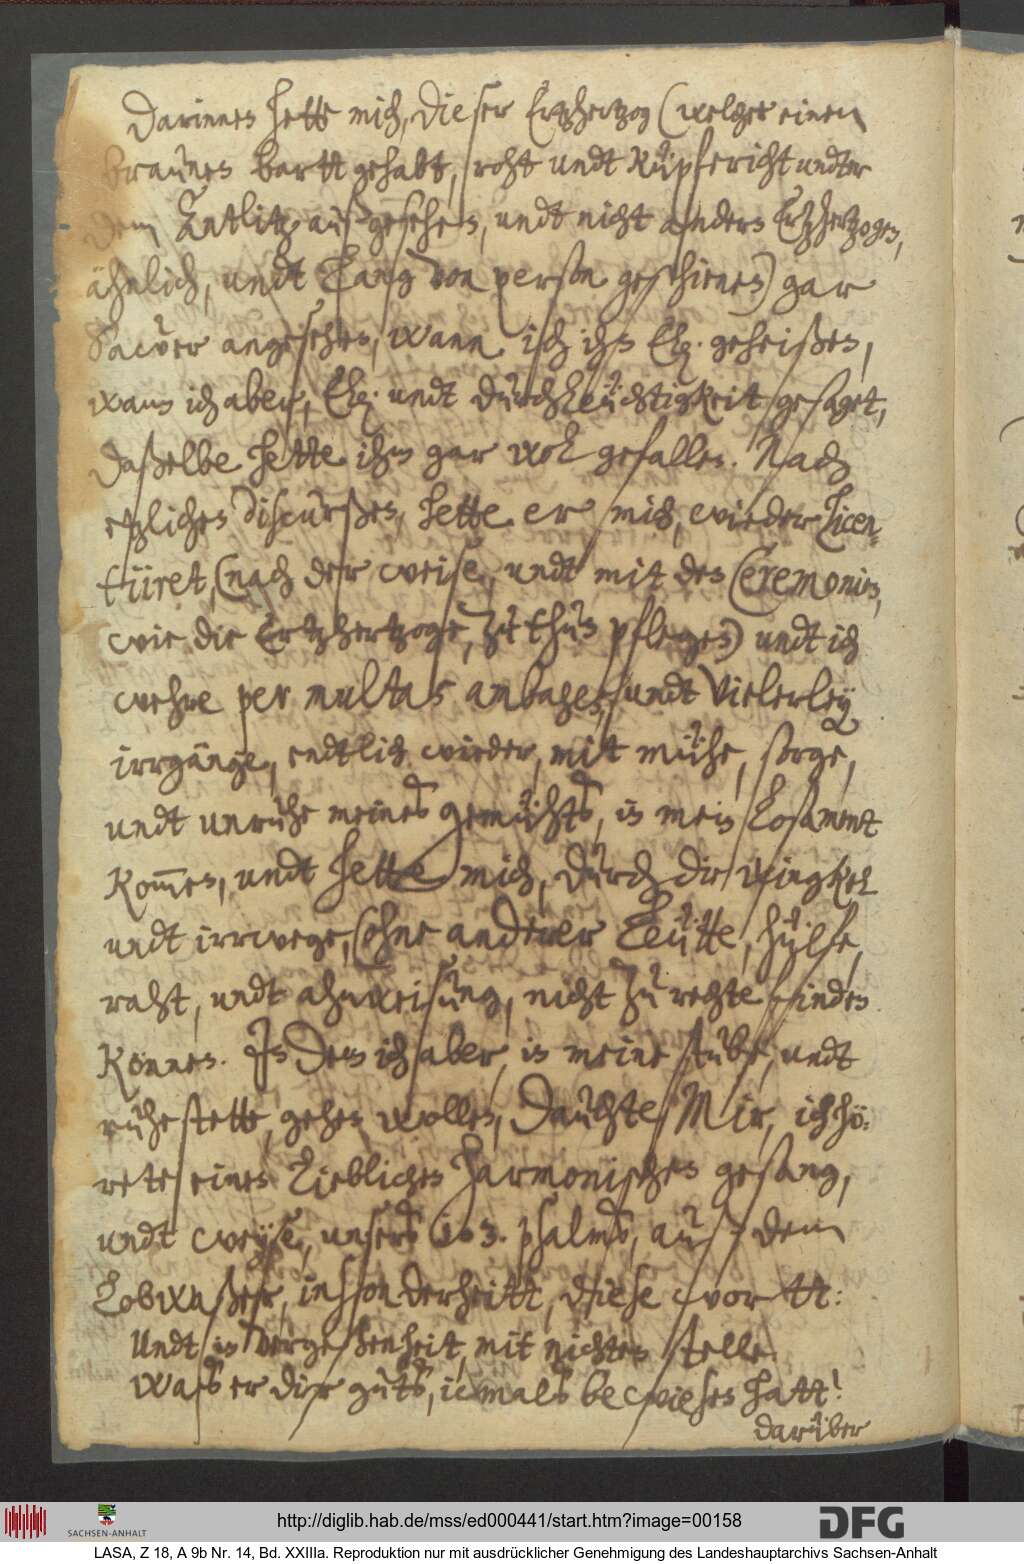 Darinnen hette mich, dieser Ertzhertzog (welcher einen
braunen bartt gehabt, roht undt kupfericht undter
dem Antlitz außgesehen, undt nicht anders Ertzhertzogen,
ähnlich, undt lang von person geschienen) gar
Sawer angesehen, wann ich ihn Ehz. geheißen,
wann ich aber, Ehz. undt Durchleüchtigkeit gesaget,
daßelbe hette ihm gar wol gefallen. Nach
etzlichen discurßen, hette er mich, wieder licen-
tijret, (nach der weise, undt mit den Ceremonien,
wie die Ertzhertzoge, zu thun pflegen) undt ich
wehre per multas ambages, undt vielerley
irrgänge, endtlich wieder, mit mühe, sorge,
undt unruhe meines gemühts, in mein losament
kommen, undt hette mich, durch die wingkel
undt irrwege, (ohne anderer leütte, hülfe,
raht, undt ahnweisung, nicht zu rechte finden
können. In dem ich aber, in meine stube, undt
ruhestette, gehen wollen, dauchte Mir, ich hö:
rete einen lieblichen harmonischen gesang,
undt weyse, unsers 103. psalms, auß dem
Lobwaßer, insonderheitt, diese wortt:
Undt in vergeßenheit, mit nichten stelle
Waß er dir guts, iemals bewiesen hatt!
darüber
http://diglib.hab.de/mss/ed000441/start.htm?image=00158
SACHSEN-ANHALT
DFG
LASA, Z 18, A 9b Nr. 14, Bd. XXIIIa. Reproduktion nur mit ausdrücklicher Genehmigung des Landeshauptarchivs Sachsen-Anhalt